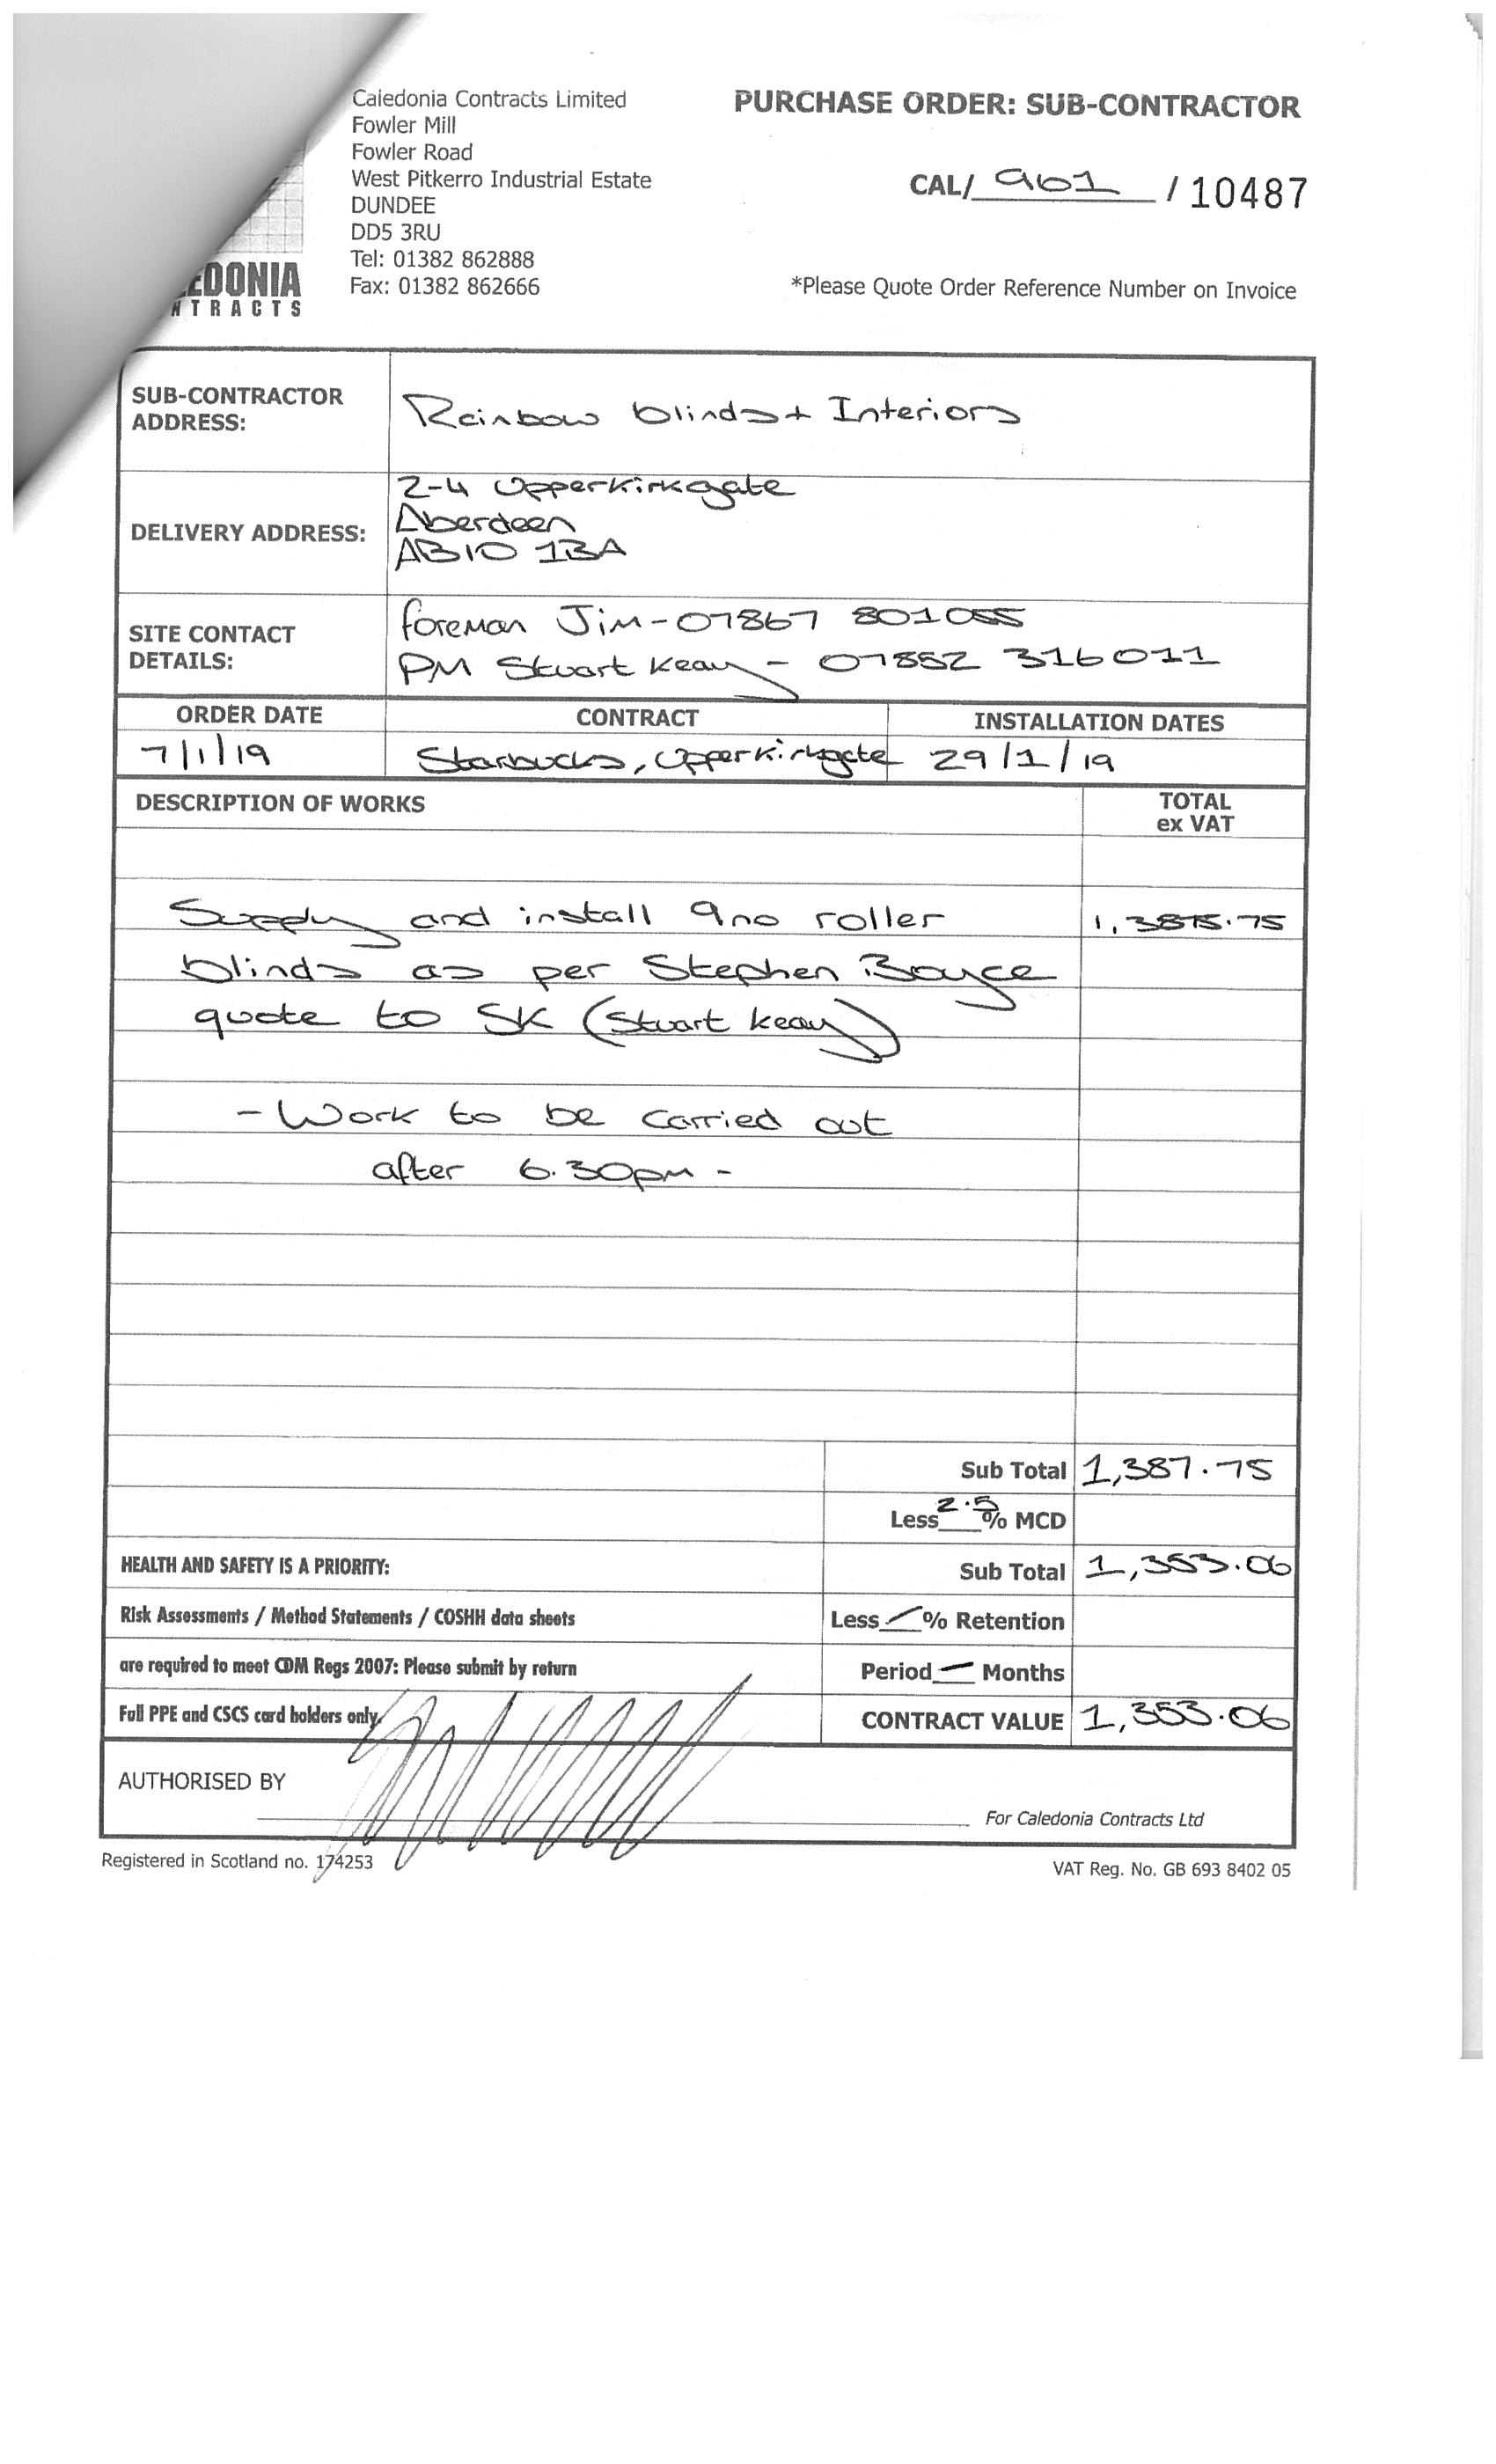 Caledonia Contracts Limited
Fowler Mill
Fowler Road
West Pitkerro Industrial Estate
DUNDEE
DD5 3RU
Tel: 01382 862888
Fax: 01382 862666
EDONIA
NTRACTS
PURCHASE ORDER: SUB-CONTRACTOR
CAL/ 961 / 10487
*Please Quote Order Reference Number on Invoice
SUB-CONTRACTOR
ADDRESS:
Rainbow blinds + Interiors
DELIVERY ADDRESS:
2-4 Upperkirkgate
Aberdeen
AB10 1BA
SITE CONTACT
DETAILS:
foreman Jim - 07867 801055
PM Stuart Keay - 07852 316011
ORDER DATE CONTRACT INSTALLATION DATES
7/1/19 Starbucks, Upperkirkgate 29/1/19
DESCRIPTION OF WORKS TOTAL
ex VAT
Supply and install 9no roller
blinds as per Stephen Boyce
quote to SK (Stuart Keay)
- Work to be carried out
after 6.30pm -
Sub Total 1,387.75
Less 2.5 % MCD
HEALTH AND SAFETY IS A PRIORITY: Sub Total 1,353.06
Risk Assessments / Method Statements / COSHH data sheets Less % Retention
are required to meet CDM Regs 2007: Please submit by return Period — Months
Full PPE and CSCS card holders only. CONTRACT VALUE 1,353.06
AUTHORISED BY
For Caledonia Contracts Ltd
Registered in Scotland no. 174253 VAT Reg. No. GB 693 8402 05